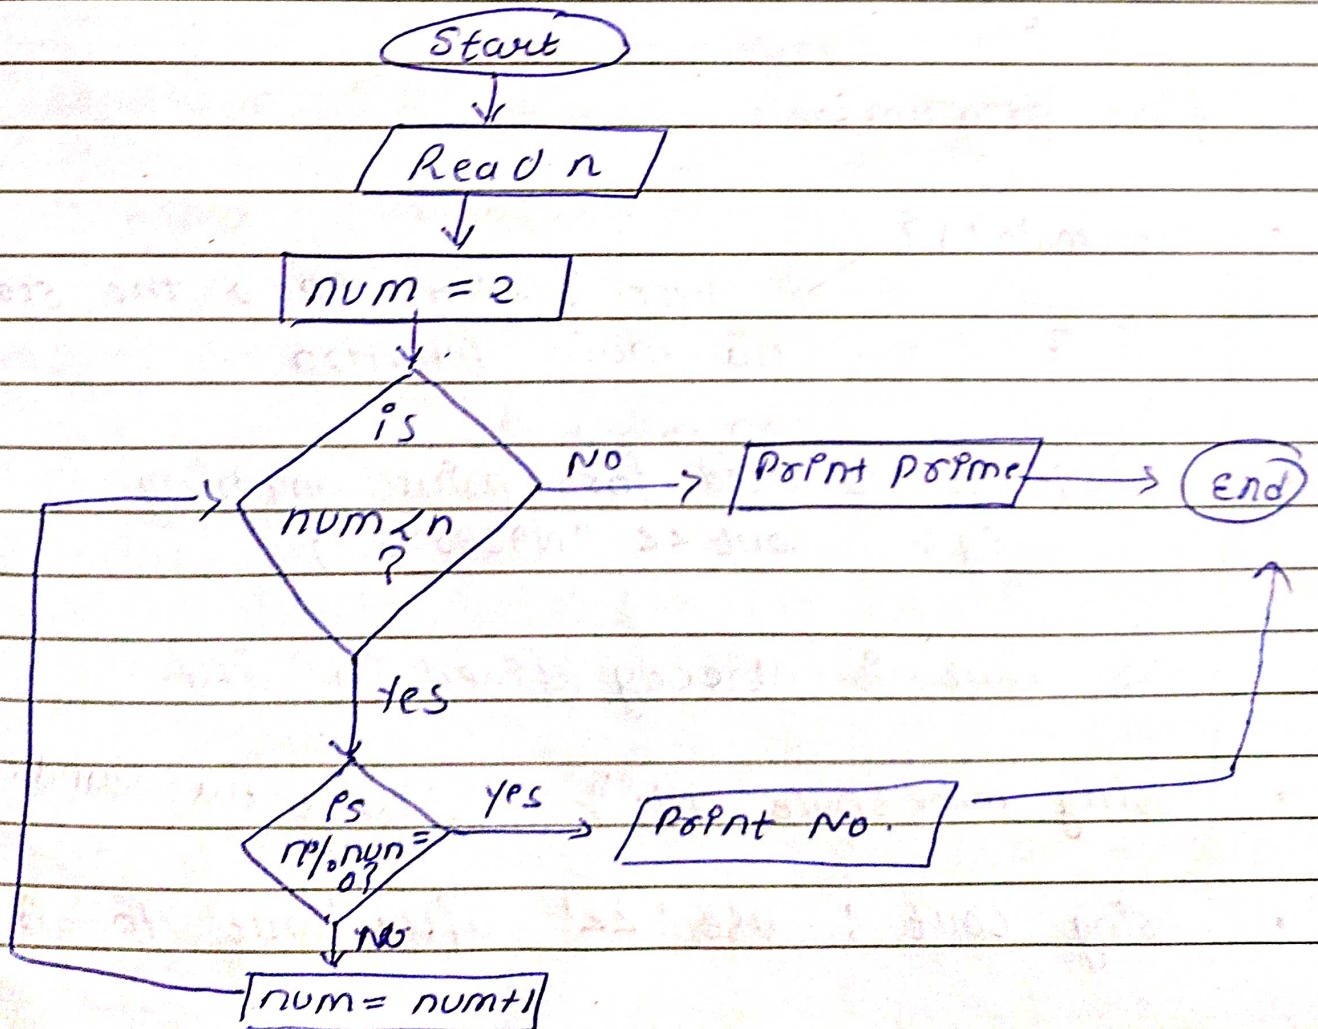 Start
Read n
num = 2
is
num < n
?
NO
Print Prime
End
Yes
Is
n%num =
0?
Yes
Print No.
No
num = num+1